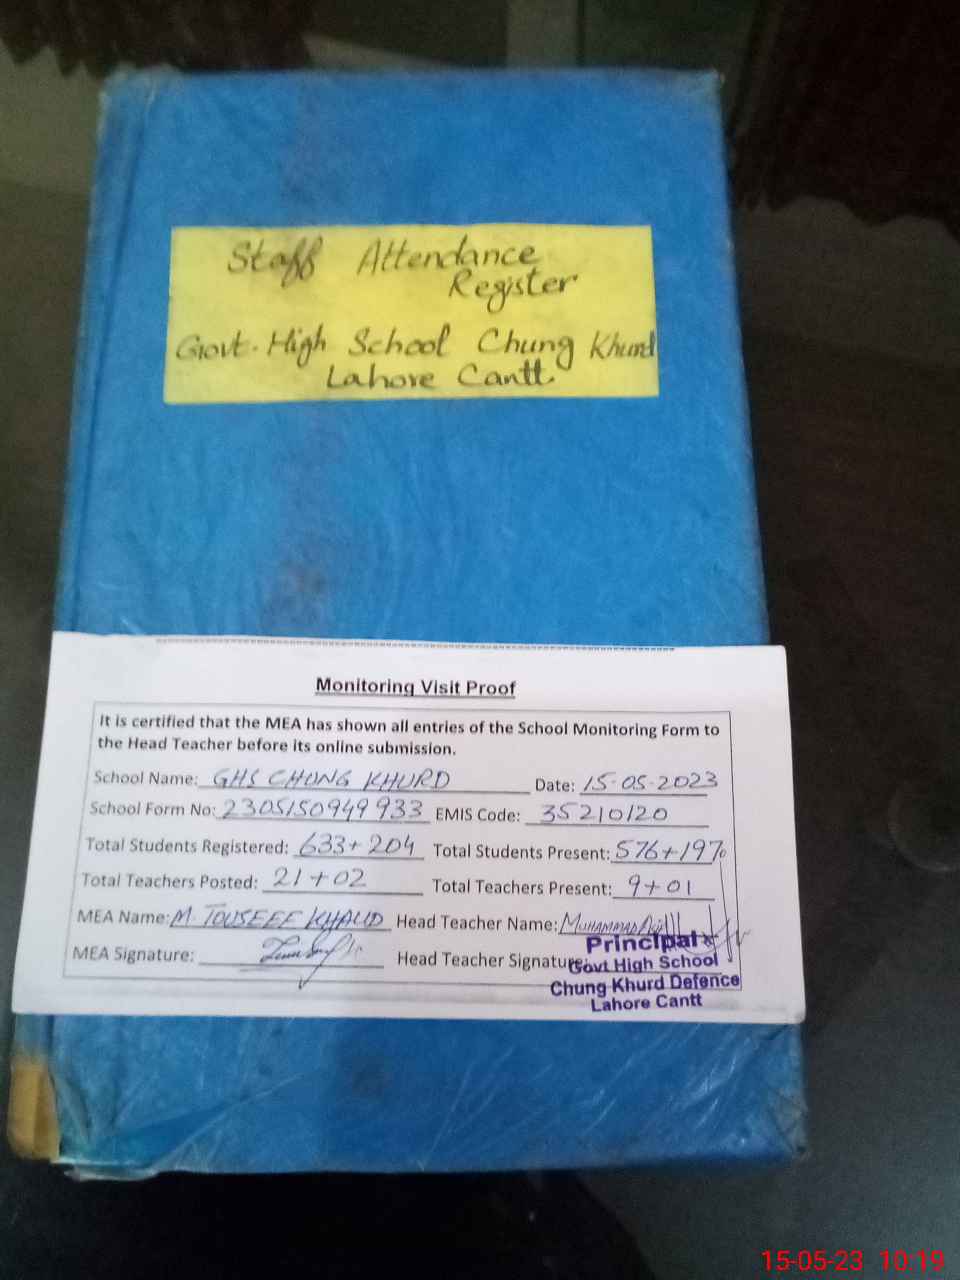 Staff Attendance
Register
Govt. High School Chung Khurd
Lahore Cantt.
Monitoring Visit Proof
It is certified that the MEA has shown all entries of the School Monitoring Form to
the Head Teacher before its online submission.
School Name: GHS CHUNG KHURD Date: 15-05-2023
School Form No: 2305150949933 EMIS Code: 35210120
Total Students Registered: 633+204 Total Students Present: 576+197
Total Teachers Posted: 21+02 Total Teachers Present: 9+01
MEA Name: M. TOUSEEF KHALID Head Teacher Name: MUHAMMAD
MEA Signature: Head Teacher Signature:
Principal
Govt High School
Chung Khurd Defence
Lahore Cantt
15-05-23 10:19